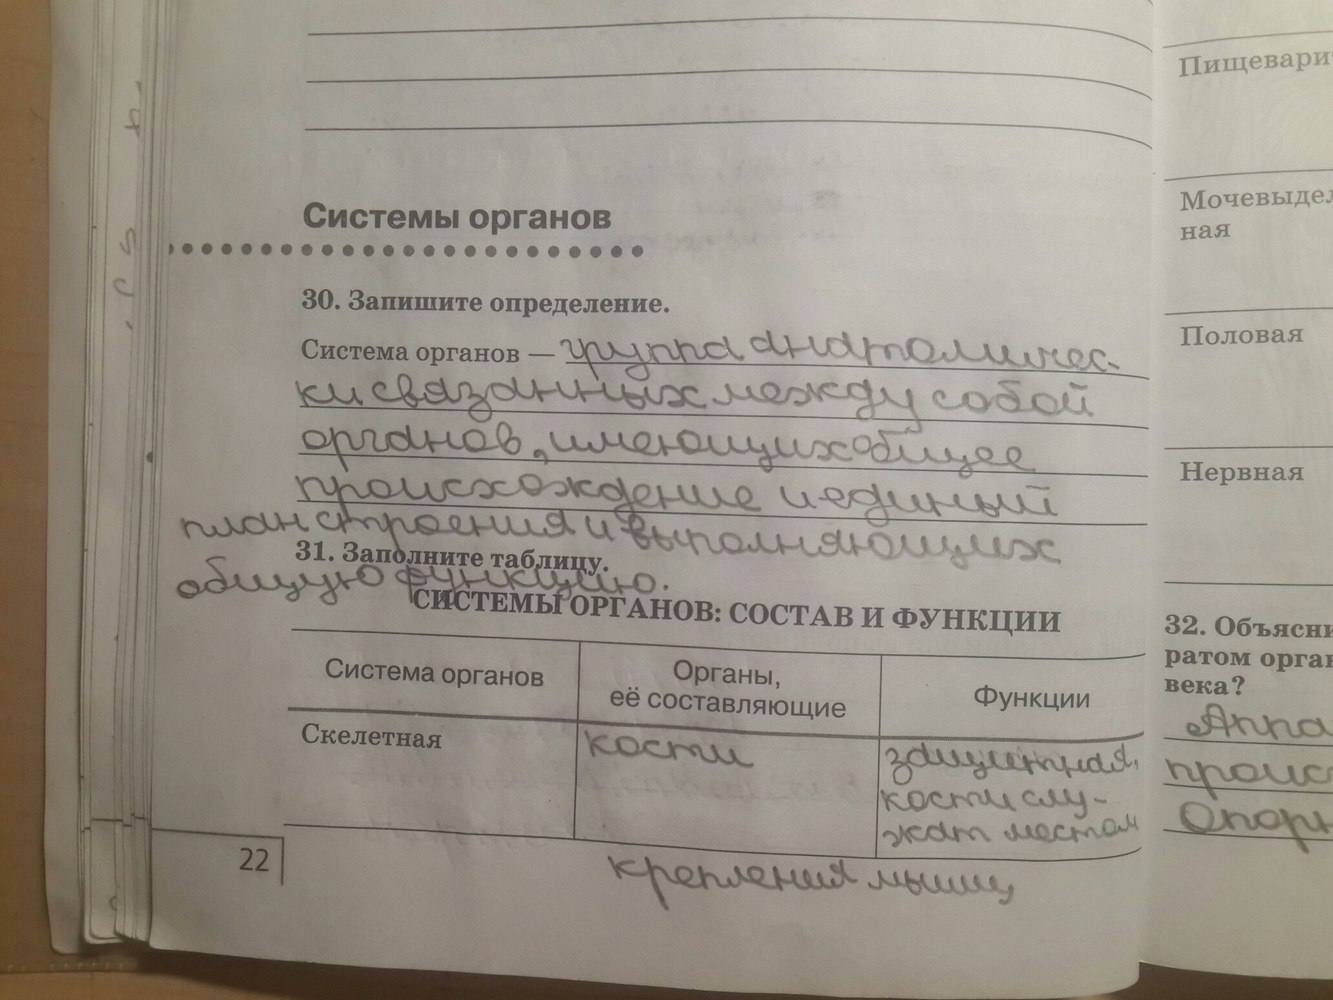 Системы органов
30. Запишите определение.
Система органов — группа анатомичес-
ки связанных между собой
органов, имеющих общее
происхождение и единый
план строения и выполняющих
31. Заполните таблицу.
общую функцию.
СИСТЕМЫ ОРГАНОВ: СОСТАВ И ФУНКЦИИ
Система органов
Органы,
её составляющие
Функции
Скелетная
кости
защитная,
кости слу-
жат местом
крепления мышц
22
Пищевари
Мочевыдел
ная
Половая
Нервная
32. Объясни
ратом орган
века?
Аппа
проис
Опорн